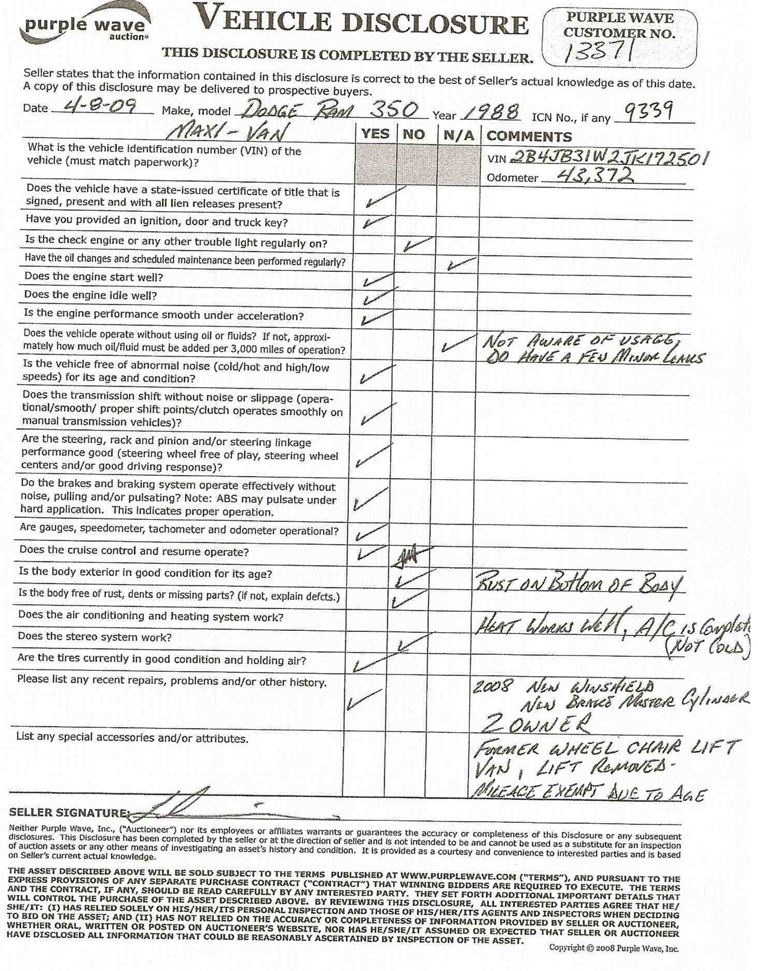 purple wave
auction®
VEHICLE DISCLOSURE
THIS DISCLOSURE IS COMPLETED BY THE SELLER.
PURPLE WAVE
CUSTOMER NO.
13371
Seller states that the information contained in this disclosure is correct to the best of Seller's actual knowledge as of this date.
A copy of this disclosure may be delivered to prospective buyers.
Date 4-8-09 Make, model DODGE RAM 350 Year 1988 ICN No., if any 9339
MAXI-VAN
YES NO N/A COMMENTS
What is the vehicle identification number (VIN) of the
vehicle (must match paperwork)?
VIN 2B4JB31W2JK172501
Odometer 43,372
Does the vehicle have a state-issued certificate of title that is
signed, present and with all lien releases present?
Have you provided an ignition, door and truck key?
Is the check engine or any other trouble light regularly on?
Have the oil changes and scheduled maintenance been performed regularly?
Does the engine start well?
Does the engine idle well?
Is the engine performance smooth under acceleration?
Does the vehicle operate without using oil or fluids? If not, approxi-
mately how much oil/fluid must be added per 3,000 miles of operation?
NOT AWARE OF USAGE,
DO HAVE A FEW MINOR LEAKS
Is the vehicle free of abnormal noise (cold/hot and high/low
speeds) for its age and condition?
Does the transmission shift without noise or slippage (opera-
tional/smooth/ proper shift points/clutch operates smoothly on
manual transmission vehicles)?
Are the steering, rack and pinion and/or steering linkage
performance good (steering wheel free of play, steering wheel
centers and/or good driving response)?
Do the brakes and braking system operate effectively without
noise, pulling and/or pulsating? Note: ABS may pulsate under
hard application. This indicates proper operation.
Are gauges, speedometer, tachometer and odometer operational?
Does the cruise control and resume operate?
Is the body exterior in good condition for its age?
Is the body free of rust, dents or missing parts? (if not, explain defcts.)
RUST ON BOTTOM OF BODY
Does the air conditioning and heating system work?
HEAT WORKS WELL, A/C IS Complete
(NOT COLD)
Does the stereo system work?
Are the tires currently in good condition and holding air?
Please list any recent repairs, problems and/or other history.
2008 NEW WINSHIELD
NEW BRAKE MASTER CYLINDER
2 OWNER
List any special accessories and/or attributes.
FORMER WHEEL CHAIR LIFT
VAN, LIFT REMOVED-
MILEAGE EXEMPT DUE TO AGE
SELLER SIGNATURE:
Neither Purple Wave, Inc., ("Auctioneer") nor its employees or affiliates warrants or guarantees the accuracy or completeness of this Disclosure or any subsequent
disclosures. This Disclosure has been completed by the seller or at the direction of seller and is not intended to and cannot be used as a substitute for an inspection
of auction assets or any other means of investigating an asset's history and condition. It is provided as a courtesy and convenience to interested parties and is based
on Seller's current actual knowledge.
THE ASSET DESCRIBED ABOVE WILL BE SOLD SUBJECT TO THE TERMS PUBLISHED AT WWW.PURPLEWAVE.COM ("TERMS"), AND PURSUANT TO THE
EXPRESS PROVISIONS OF ANY SEPARATE PURCHASE CONTRACT ("CONTRACT") THAT WINNING BIDDERS ARE REQUIRED TO EXECUTE. THE TERMS
AND THE CONTRACT, IF ANY, SHOULD BE READ CAREFULLY BY ANY INTERESTED PARTY. THEY SET FORTH ADDITIONAL IMPORTANT DETAILS THAT
WILL CONTROL THE PURCHASE OF THE ASSET DESCRIBED ABOVE. BY REVIEWING THIS DISCLOSURE, ALL INTERESTED PARTIES AGREE THAT HE/
SHE/IT: (I) HAS RELIED SOLELY ON HIS/HER/ITS PERSONAL INSPECTION AND THOSE OF HIS/HER/ITS AGENTS AND INSPECTORS WHEN DECIDING
TO BID ON THE ASSET; AND (II) HAS NOT RELIED ON THE ACCURACY OR COMPLETENESS OF INFORMATION PROVIDED BY SELLER OR AUCTIONEER,
WHETHER ORAL, WRITTEN OR POSTED ON AUCTIONEER'S WEBSITE, NOR HAS HE/SHE/IT ASSUMED OR EXPECTED THAT SELLER OR AUCTIONEER
HAVE DISCLOSED ALL INFORMATION THAT COULD BE REASONABLY ASCERTAINED BY INSPECTION OF THE ASSET.
Copyright © 2008 Purple Wave, Inc.